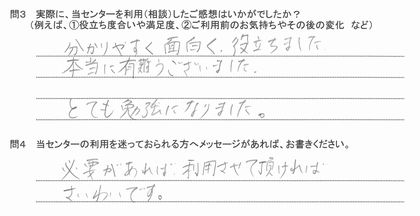 問3　実際に、当センターを利用（相談）したご感想はいかがでしたか？
（例えば、①役立ち度合いや満足度、②ご利用前のお気持ちやその後の変化　など）
分かりやすく面白く、役立ちました
本当に有難うございました。
とても勉強になりました。
問4　当センターの利用を迷っておられる方へメッセージがあれば、お書きください。
必要があれば、利用させて頂ければ
さいわいです。